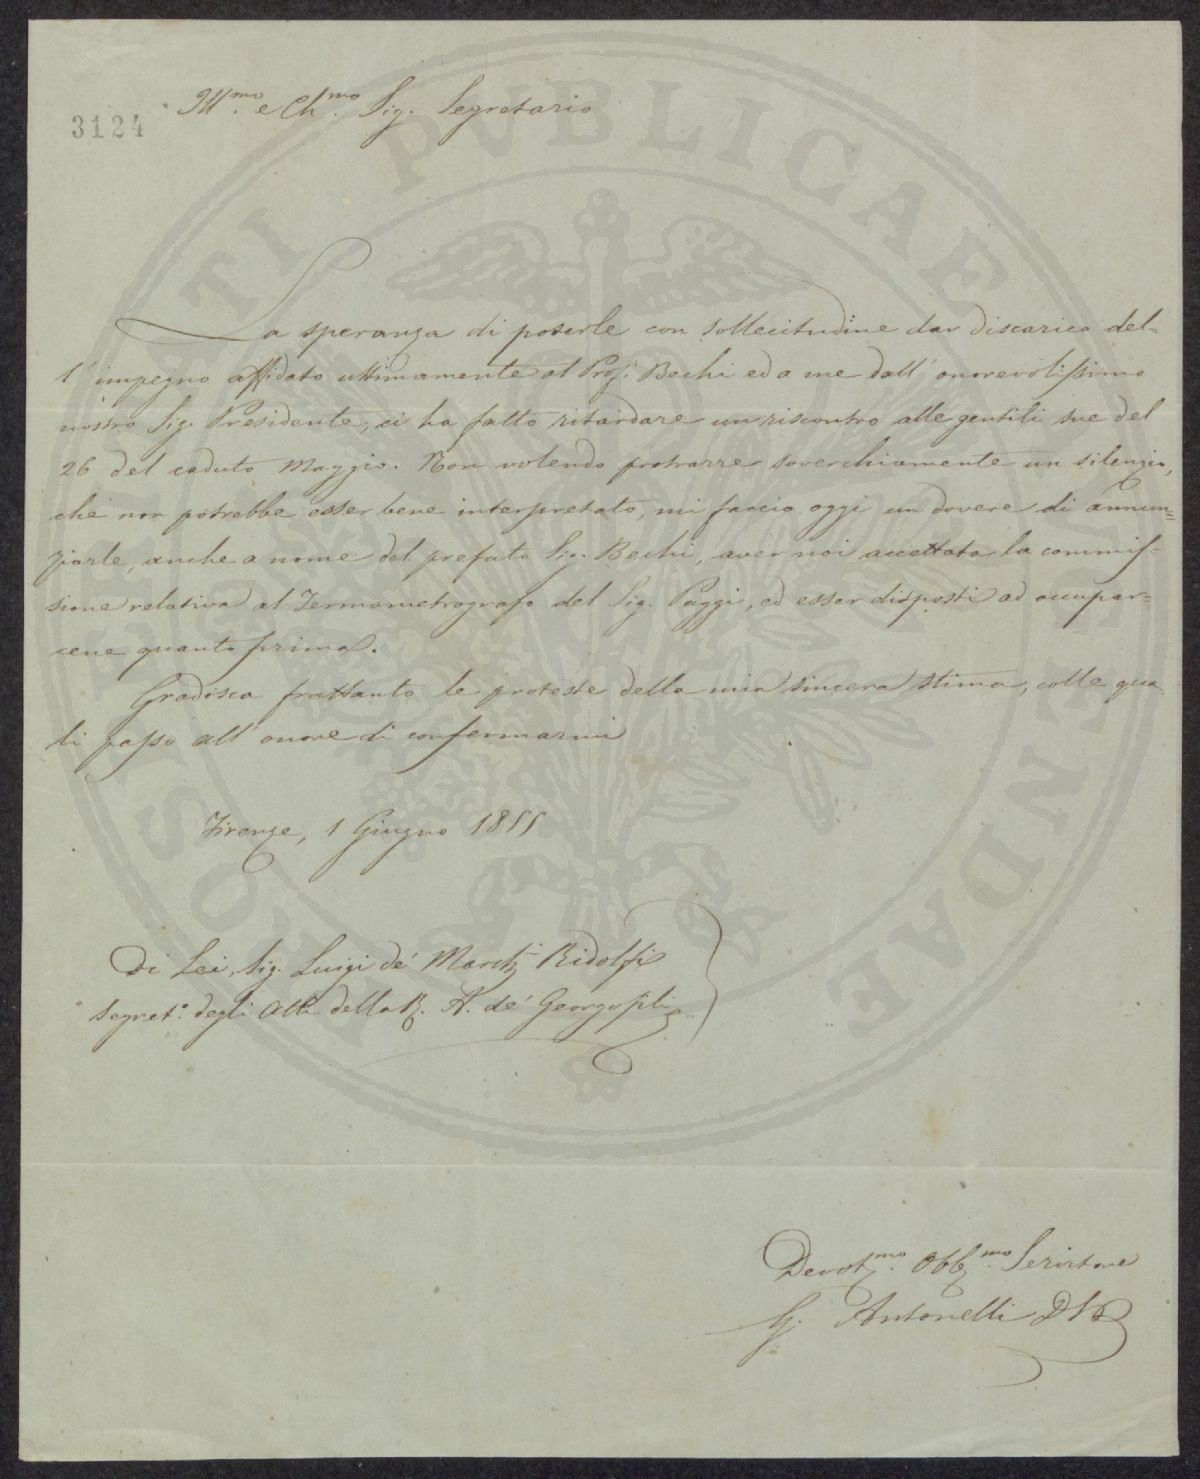 3124
Ill.mo e Ch.mo Sig. Segretario
La speranza di poterle con sollecitudine dar discarico del=
l'impegno affidato ultimamente al Prof. Bechi ed a me dall'onorevolissimo
nostro Sig. Presidente, ci ha fatto ritardare un riscontro alle gentili sue del
26 del caduto Maggio. Non volendo protrarre soverchiamente un silenzio,
che non potrebbe esser bene interpretato, mi faccio oggi un dovere di annun=
ziarle, anche a nome del prefato Sig. Bechi, aver noi accettata la commis=
sione relativa al Termometrografo del Sig. Paggi, ed esser disposti ad occupar=
cene quanto prima.
Gradisca frattanto le proteste della mia sincera stima, colle qua=
li passo all'onore di confermarmi
Firenze, 1 Giugno 1855
Di Lei, Sig. Luigi de' March.i Ridolfi
Segret.o degli Atti della R. A. de' Georgofili
Devot.mo Obb.mo Servitore
G. Antonelli D. S. P.
PVBLICAE